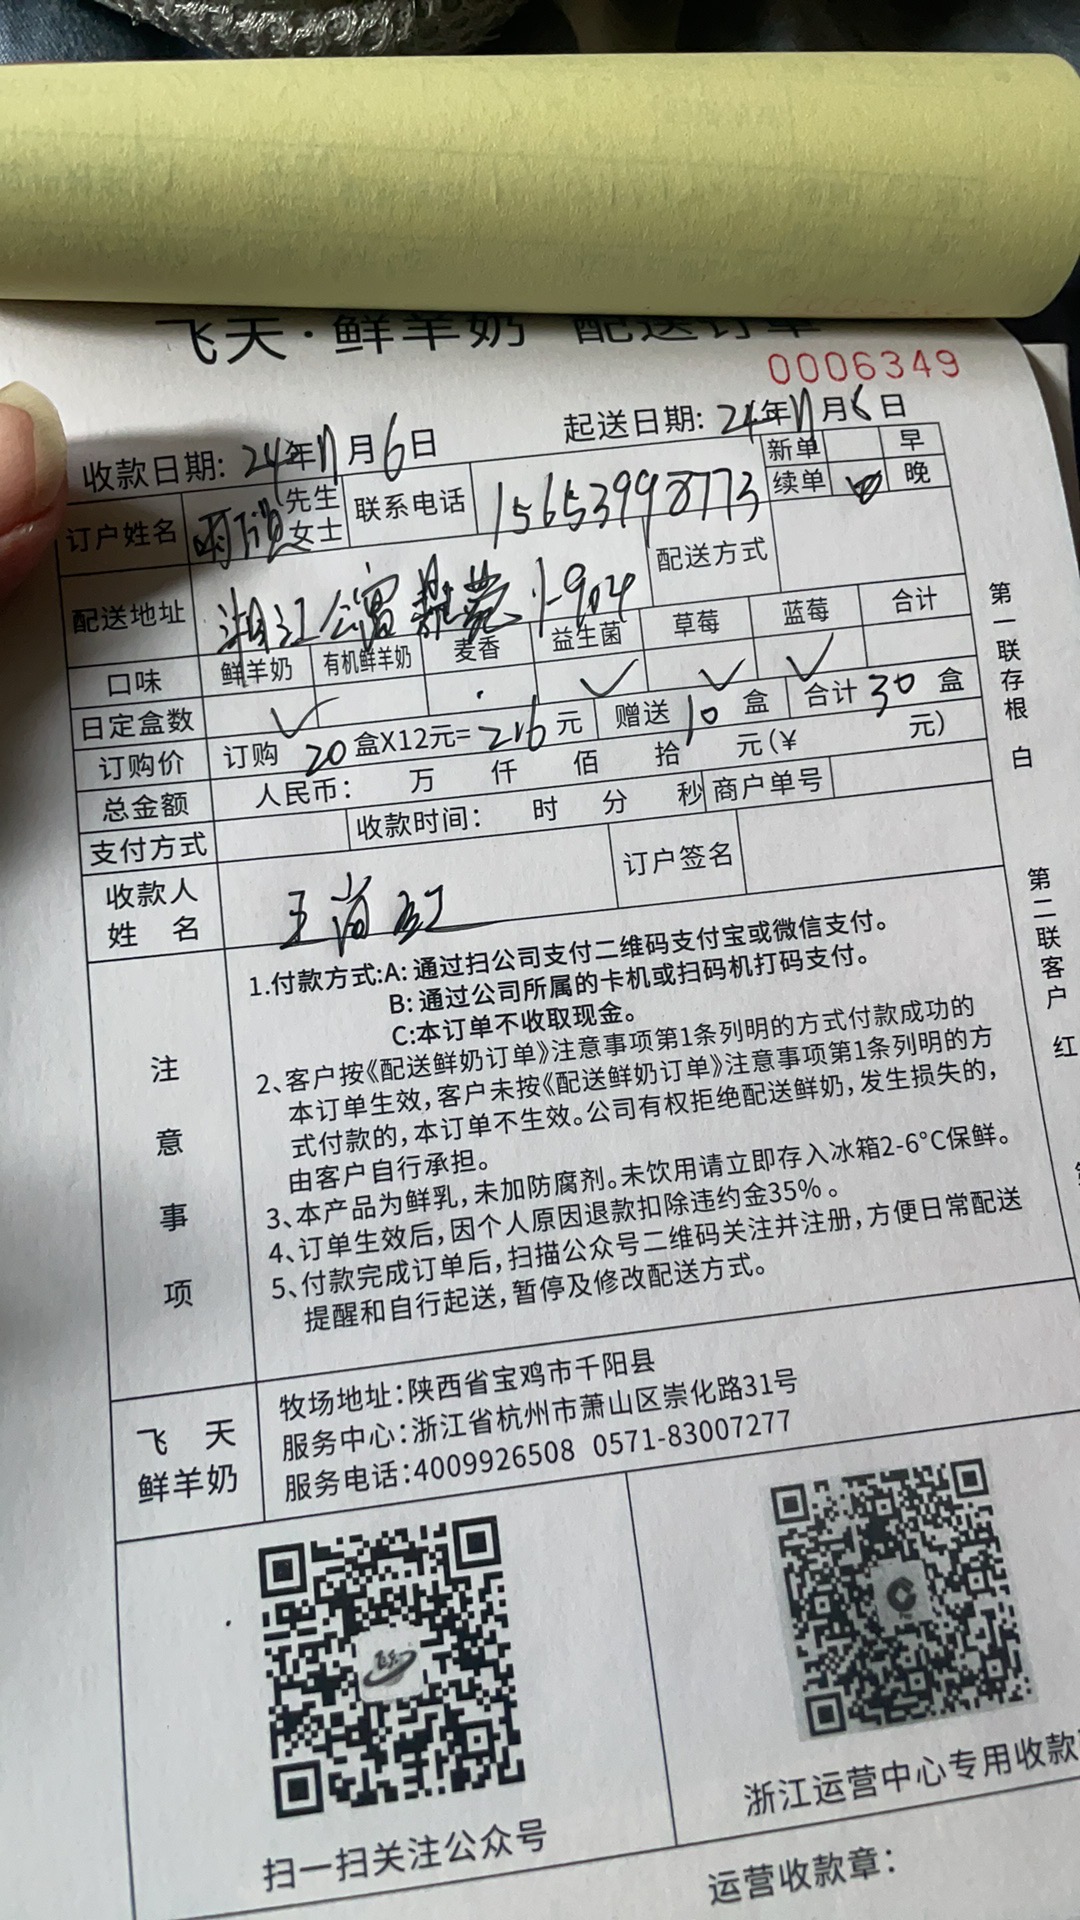 飞天·鲜羊奶 配送订单
0006349
收款日期: 24年11月6日 起送日期: 24年11月6日
新单 早
续单 晚
订户姓名 先生 女士 联系电话 15653998773
配送地址 湘江公寓 1-904 配送方式
口味 鲜羊奶 有机鲜羊奶 麦香 益生菌 草莓 蓝莓 合计
日定盒数 ✓ ✓ ✓ ✓
订购价 订购 20 盒X12元= 216 元 赠送 10 盒 合计 30 盒
总金额 人民币: 万 仟 佰 拾 元(¥ 元)
支付方式 收款时间: 时 分 秒 商户单号
收款人姓名 王 订户签名
第一联存根 白
第二联客户 红
注意事项
1.付款方式:A: 通过扫公司支付二维码支付宝或微信支付。
B: 通过公司所属的卡机或扫码机打码支付。
C:本订单不收取现金。
2、客户按《配送鲜奶订单》注意事项第1条列明的方式付款成功的
本订单生效,客户未按《配送鲜奶订单》注意事项第1条列明的方
式付款的,本订单不生效。公司有权拒绝配送鲜奶,发生损失的,
由客户自行承担。
3、本产品为鲜乳,未加防腐剂。未饮用请立即存入冰箱2-6°C保鲜。
4、订单生效后,因个人原因退款扣除违约金35%。
5、付款完成订单后,扫描公众号二维码关注并注册,方便日常配送
提醒和自行起送,暂停及修改配送方式。
飞天
鲜羊奶
牧场地址:陕西省宝鸡市千阳县
服务中心:浙江省杭州市萧山区崇化路31号
服务电话:4009926508 0571-83007277
扫一扫关注公众号
浙江运营中心专用收款
运营收款章: